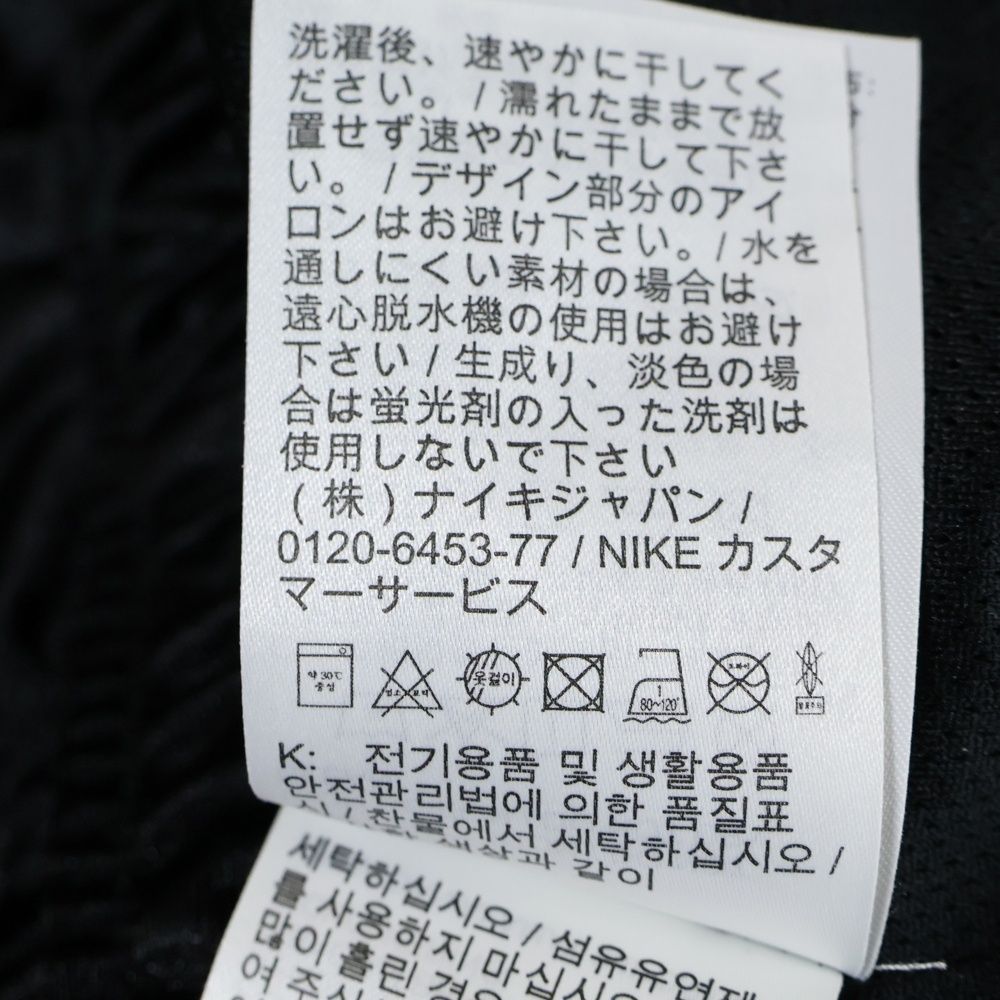 洗濯後、速やかに干してく
ださい。/濡れたままで放
置せず速やかに干して下さ
い。/デザイン部分のアイ
ロンはお避け下さい。/水を
通しにくい素材の場合は、
遠心脱水機の使用はお避け
下さい/生成り、淡色の場
合は蛍光剤の入った洗剤は
使用しないで下さい
(株)ナイキジャパン/
0120-6453-77 / NIKE カスタ
マーサービス
약 30℃
중성
염소 표백
옷걸이
1
80~120℃
드라이
K: 전기용품 및 생활용품
안전관리법에 의한 품질표
시 / 찬물에서 세탁하십시오 /
색상과 같이
세탁하십시오 / 섬유유연제
를 사용하지 마십시
많이 흘린 경우
여 주시